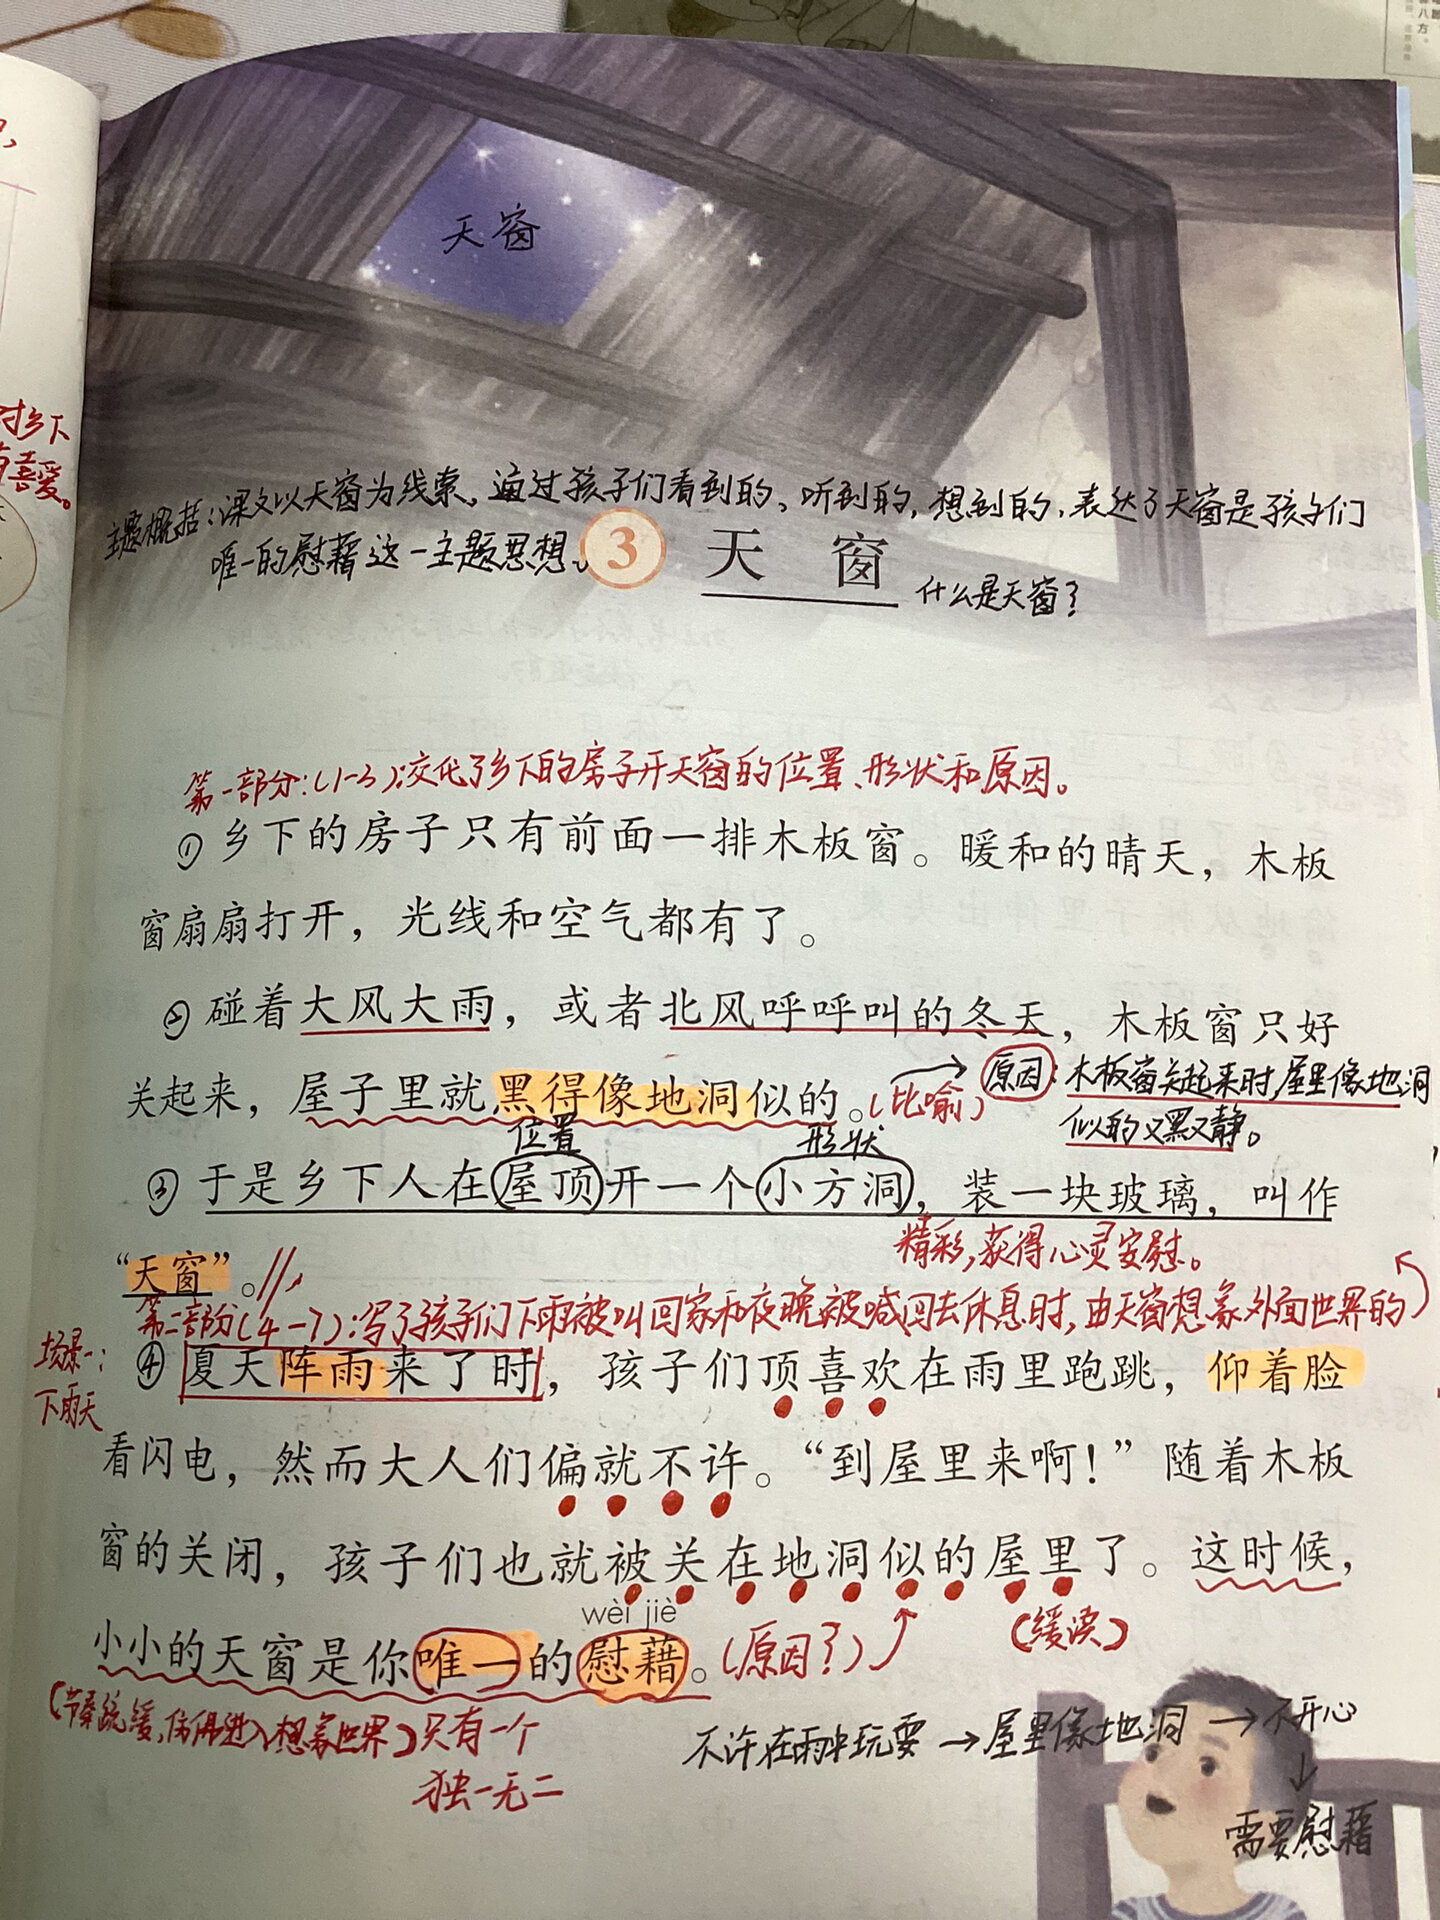 天窗
对乡下
喜爱。
主题概括：课文以天窗为线索。通过孩子们看到的、听到的，想到的，表达了天窗是孩子们
唯一的慰藉这一主题思想。
3 天窗
什么是天窗？
第一部分：(1-3)：交代了乡下的房子开天窗的位置、形状和原因。
①乡下的房子只有前面一排木板窗。暖和的晴天，木板
窗扇扇打开，光线和空气都有了。
②碰着大风大雨，或者北风呼呼叫的冬天，木板窗只好
关起来，屋子里就黑得像地洞似的。(比喻)
原因：木板窗关起来时，屋里像地洞
似的又黑又静。
位置 形状
③于是乡下人在屋顶开一个小方洞，装一块玻璃，叫作
“天窗”。
精彩，获得心灵安慰。
第二部分(4-7)：写了孩子们下雨被叫回家和夜晚被喊回去休息时，由天窗想象外面世界的
场景一：
下雨天
④夏天阵雨来了时，孩子们顶喜欢在雨里跑跳，仰着脸
看闪电，然而大人们偏就不许。“到屋里来啊！”随着木板
窗的关闭，孩子们也就被关在地洞似的屋里了。这时候，
wèi jiè
小小的天窗是你唯一的慰藉。(原因？)
(缓读)
(节奏疏缓，仿佛进入想象世界)只有一个
独一无二
不许在雨中玩耍→屋里像地洞→不开心
↓
需要慰藉